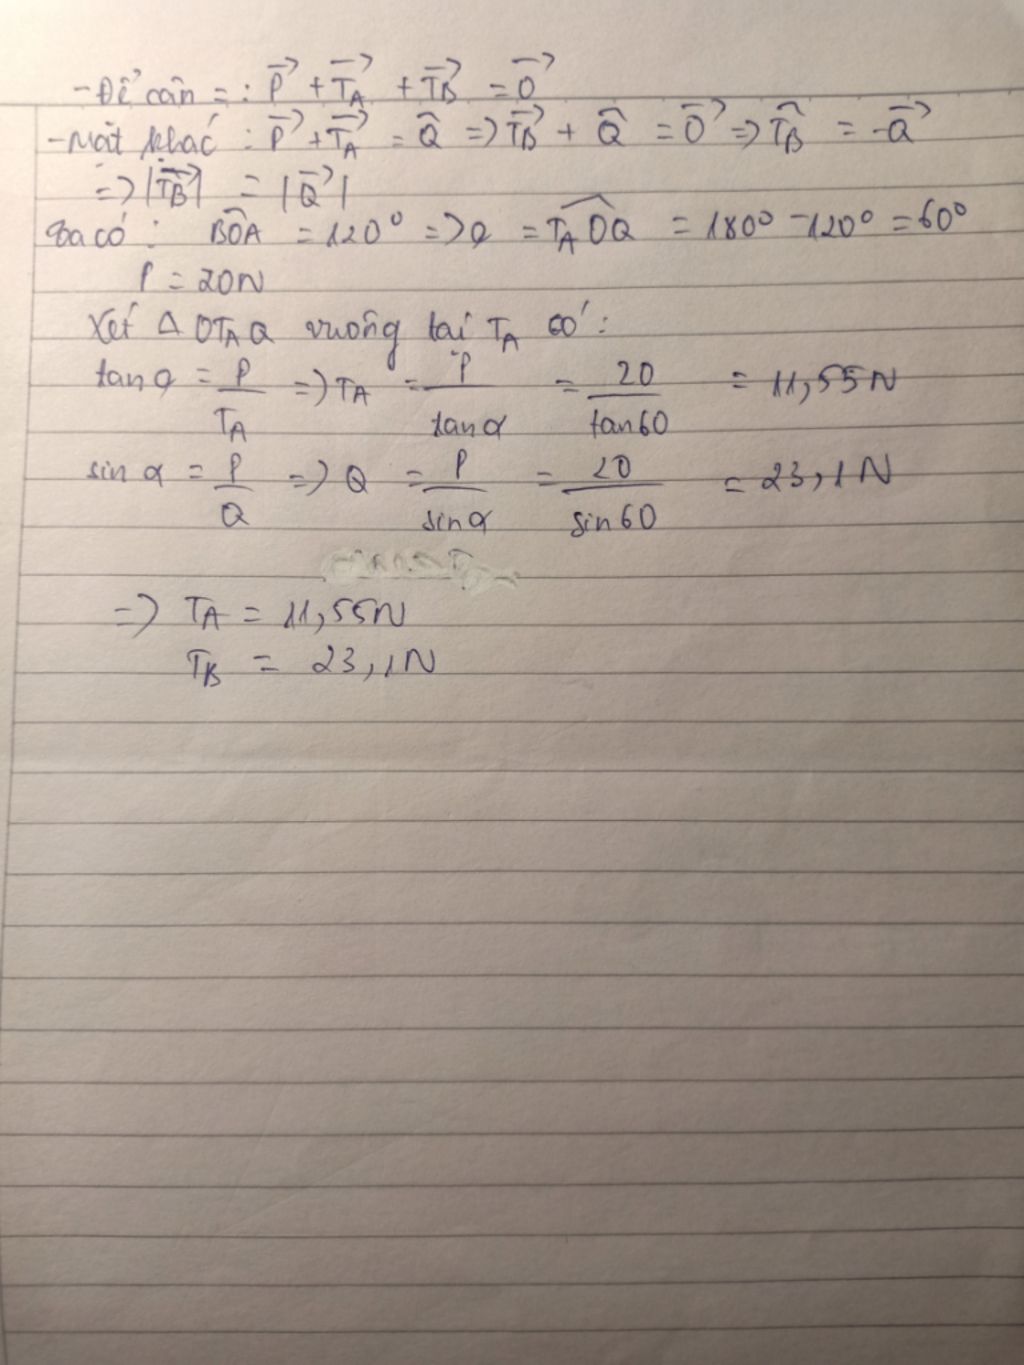 - Để cân = : P⃗ + T⃗A + T⃗B = 0⃗
- Mặt khác : P⃗ + T⃗A = Q⃗ => T⃗B + Q⃗ = 0⃗ => T⃗B = -Q⃗
=> |T⃗B| = |Q⃗|
Ta có : BÔA = 120° => α = TAÔQ = 180° - 120° = 60°
P = 20N
Xét Δ OTAQ vuông tại TA có :
tan α = P/TA => TA = P/tan α = 20/tan 60 = 11,55N
sin α = P/Q => Q = P/sin α = 20/sin 60 = 23,1N
=> TA = 11,55N
TB = 23,1N